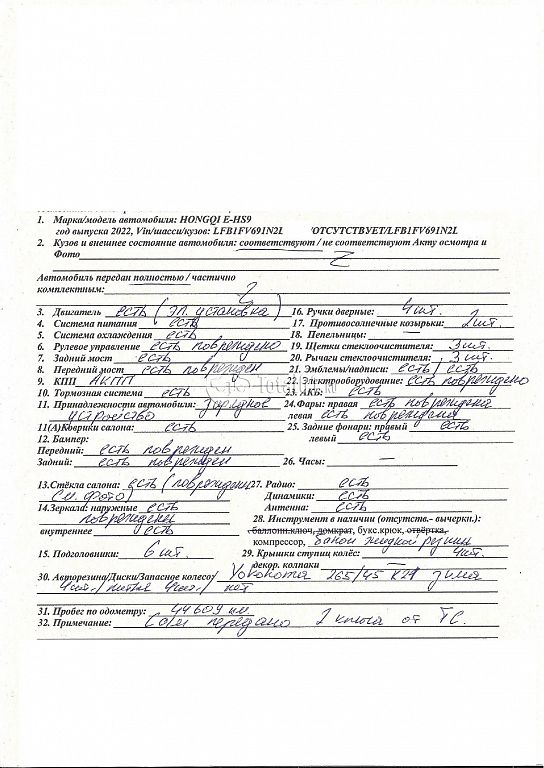 1. Марка/модель автомобиля: HONGQI E-HS9
год выпуска 2022, Vin/шасси/кузов: LFB1FV691N2L /ОТСУТСТВУЕТ/LFB1FV691N2L
2. Кузов и внешнее состояние автомобиля: соответствуют / не соответствуют Акту осмотра и
Фото
Автомобиль передан полностью / частично
комплектным:
3. Двигатель есть (эл. установка) 16. Ручки дверные: 4 шт.
4. Система питания есть 17. Противосолнечные козырьки: 2 шт.
5. Система охлаждения есть 18. Пепельницы: —
6. Рулевое управление есть повреждено 19. Щетки стеклоочистителя: 3 шт.
7. Задний мост есть 20. Рычаги стеклоочистителя: 3 шт.
8. Передний мост есть поврежден 21. Эмблемы/надписи: есть / есть
9. КПП АКПП 22. Электрооборудование: есть повреждено
10. Тормозная система есть 23. АКБ: есть
11. Принадлежности автомобиля: Зарядное 24. Фары: правая есть повреждена
устройство левая есть повреждена
11(А)Коврики салона: есть 25. Задние фонари: правый есть
12. Бампер: левый есть
Передний: есть поврежден
Задний: есть поврежден 26. Часы: —
13.Стёкла салона: есть (повреждены 27. Радио: есть
см. фото) Динамики: есть
14.Зеркала: наружные есть Антенна: есть
повреждены 28. Инструмент в наличии (отсутств.- вычеркн.):
внутреннее есть баллонн.ключ, домкрат, букс.крюк, отвёртка,
компрессор, балон жидкой резины
15. Подголовники: 6 шт. 29. Крышки ступиц колёс: 4 шт.
декор. колпаки —
30. Авторезина/Диски/Запасное колесо/ Yokohama 265/45 R21 зима
4 шт. / литые 4 шт. / нет
31. Пробег по одометру: 44609 км.
32. Примечание: С а/м передано 2 ключа от ТС.